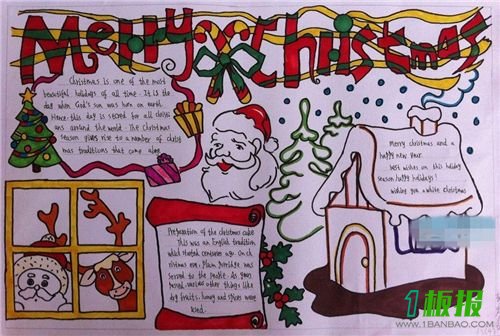 Merry Christmas
Christmas is one of the most
beautiful holidays of all time. It is the
day when God's son was born on earth.
Hence this day is sacred for all
around the world. The Christmas
season gives rise to a number of christ
mas traditions that come along
Merry christmas and a
happy new year.
best wishes on this holiday
season. happy holidays!
wishing you a white christmas
Preparation of the christmas cake
This was an English tradition,
which started centuries ago. On ch
ristmas eve, Plum Porridge was
served to the people. As years
passed, various other things like
dry fruits, honey and spices were
1板报
WWW.1BANBAO.COM